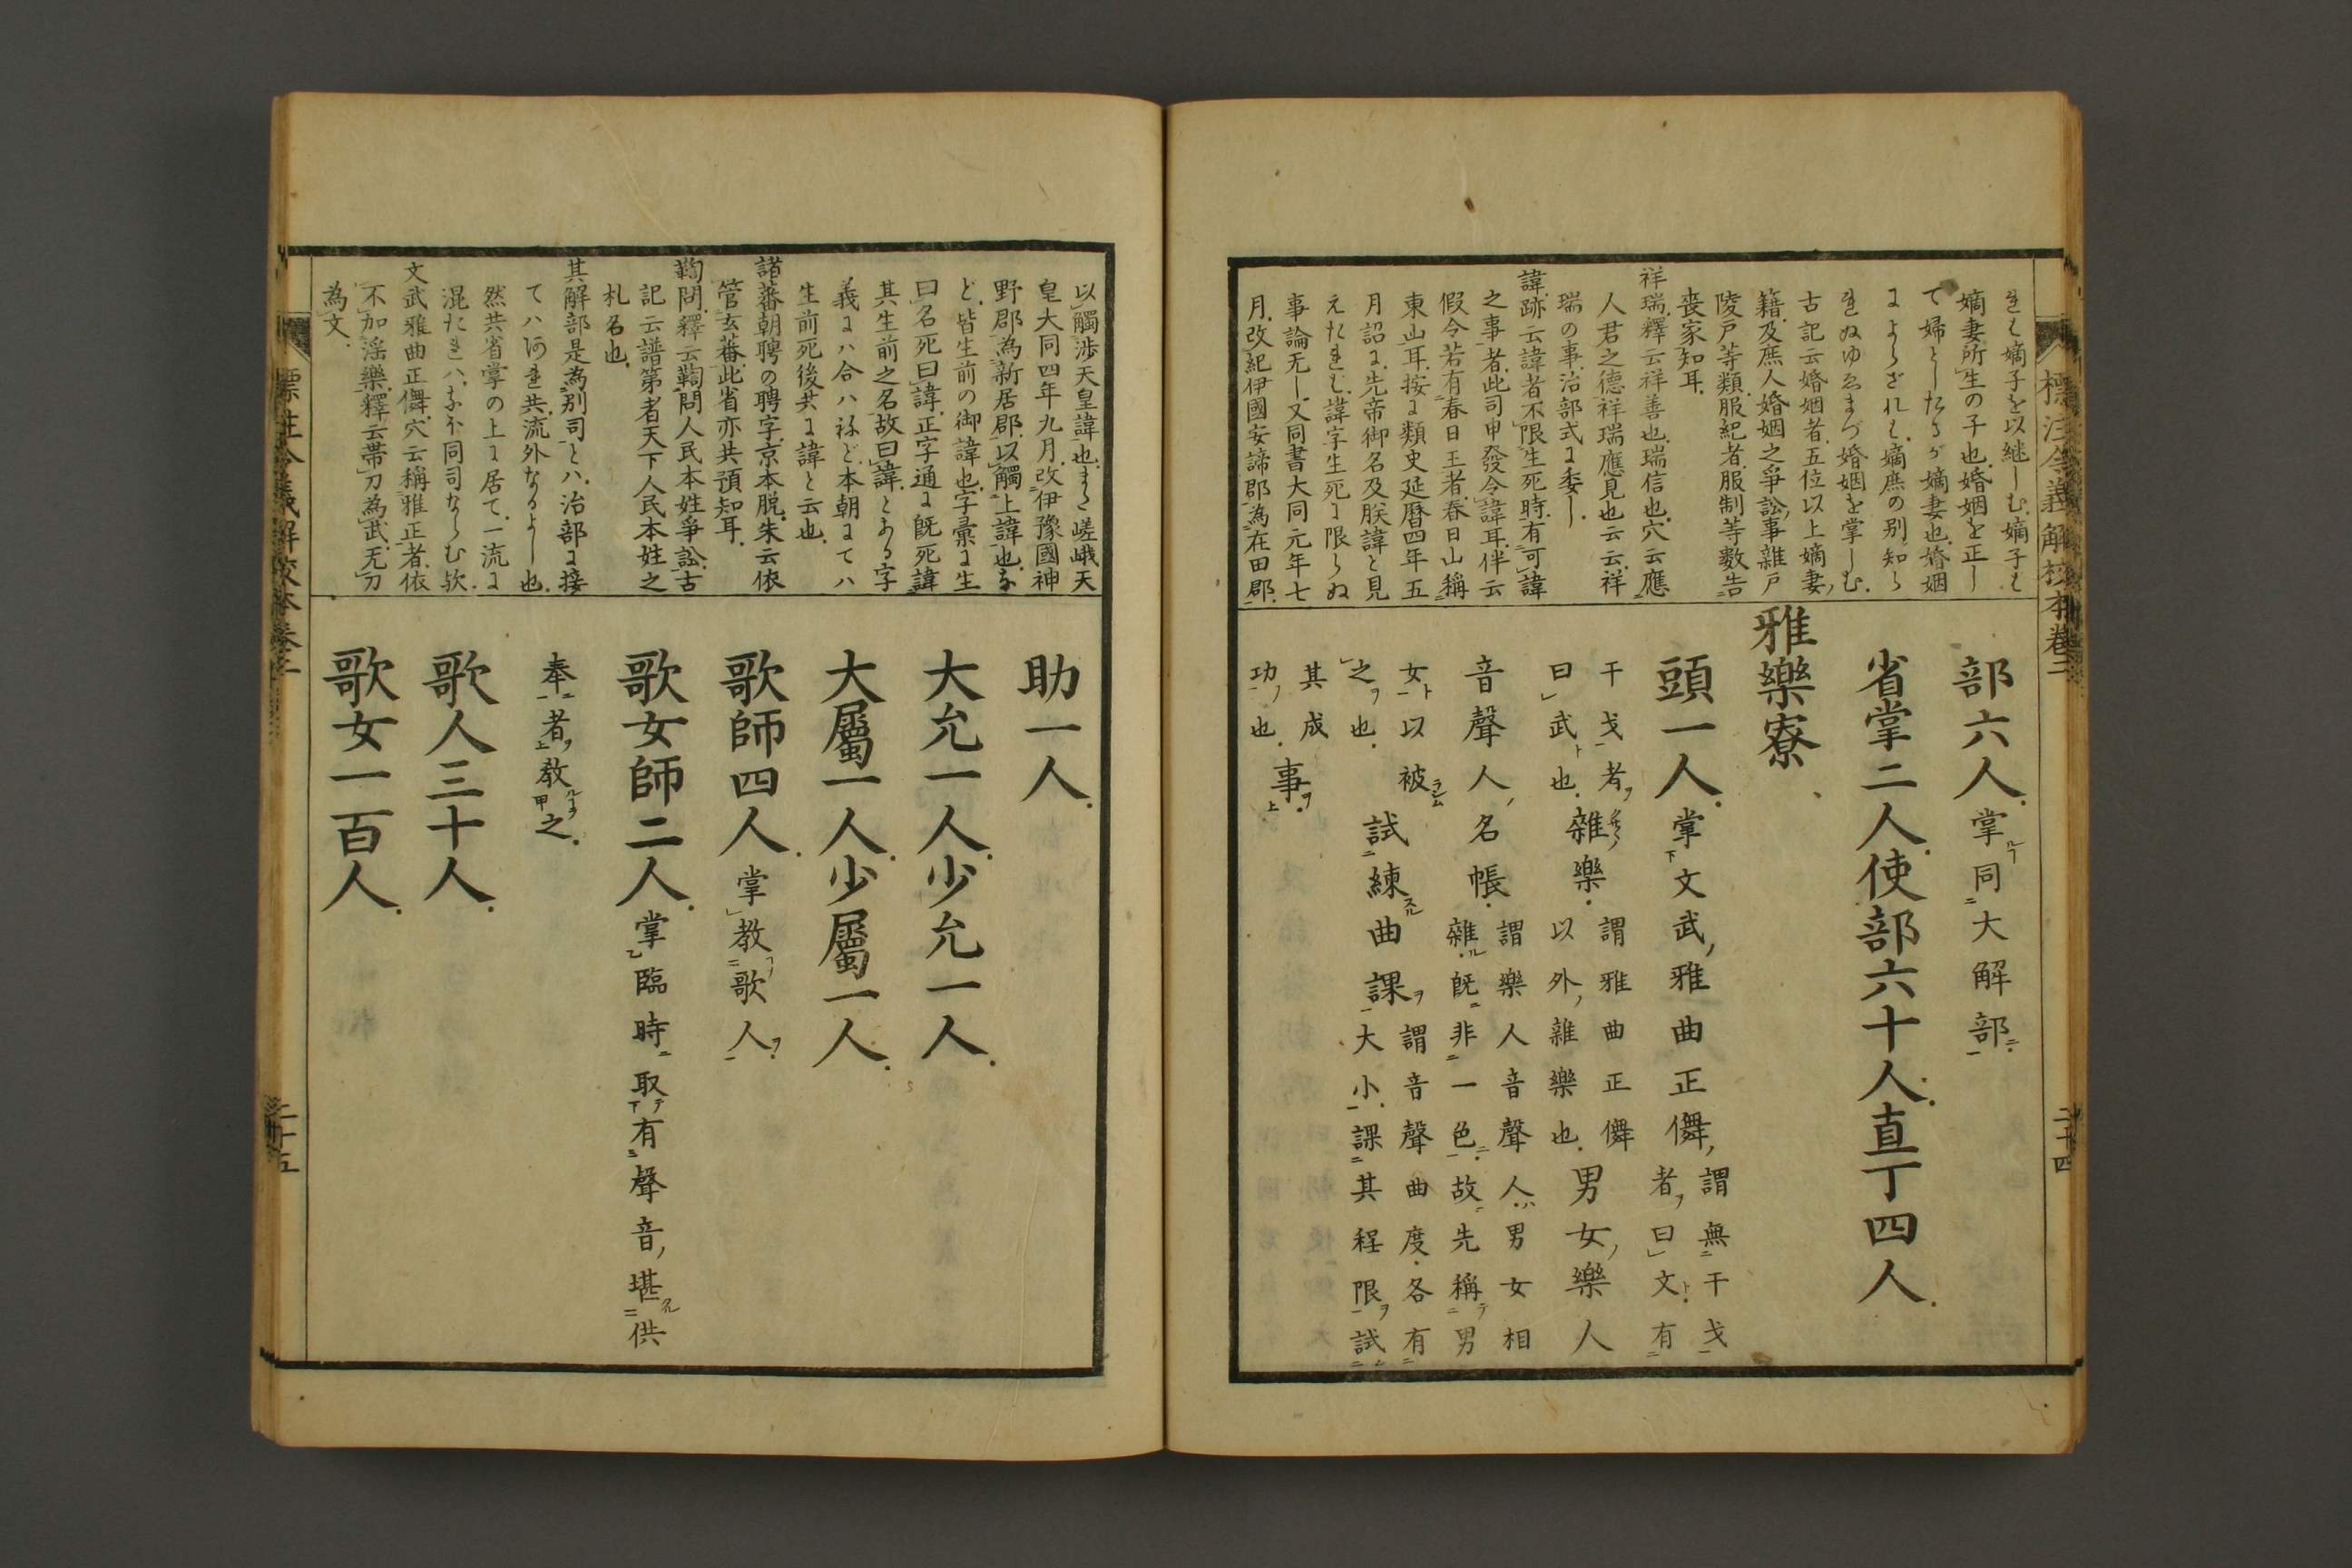 標注令義解校本卷二
二十四
嫡妻所生の子也婚姻を正し
て婦としたるが嫡妻也婚姻
古記云婚姻者五位以上嫡妻
籍及庶人婚姻之爭訟事雜戸
陵戸等類服紀者服制等數告
喪家知耳
祥瑞釋云祥善也瑞信也穴云應
人君之德祥瑞應見也云云祥
瑞の事治部式に委し
諱跡云諱者不限生死時有可諱
之事者此司申發令諱耳伴云
假令若有春日王者春日山稱
東山耳按に類史延曆四年五
月詔に先帝御名及朕諱と見
えたれど諱字生死に限らぬ
事論无し又同書大同元年七
月改紀伊國安諦郡為在田郡
部六人掌同大解部
省掌二人使部六十人直丁四人
雅樂寮
頭一人掌文武雅曲正儛謂無干戈
者曰文有
干戈者謂雅曲正儛
曰武也雜樂以外雜樂也男女樂人
音聲人名帳謂樂人音聲人男女相
雜既非一色故先稱男
女以被
之也試練曲課謂音聲曲度各有
大小課其程限試
其成
功也事
以觸渉天皇諱也また嵯峨天
皇大同四年九月改伊豫國神
野郡為新居郡以觸上諱也な
ど皆生前の御諱也字彙に生
曰名死曰諱正字通に既死諱
其生前之名故曰諱とある字
義にハ合ハねど本朝にてハ
生前死後共に諱と云也
諸蕃朝聘の聘字京本脱朱云依
管玄蕃此省亦共預知耳
鞫問釋云鞫問人民本姓爭訟古
記云譜第者天下人民本姓之
札名也
其解部是為別司とハ治部に接
てハあれ共流外なるよし也
然共省掌の上に居て一流に
混たれハなほ同司ならむ欤
文武雅曲正儛穴云稱雅正者依
不加淫樂釋云帶刀為武无刀
為文
助一人
大允一人少允一人
大屬一人少屬一人
歌師四人掌教歌人
歌女師二人掌臨時取有聲音堪供
奉者教之
歌人三十人
歌女一百人
標注令義解校本卷二
二十五